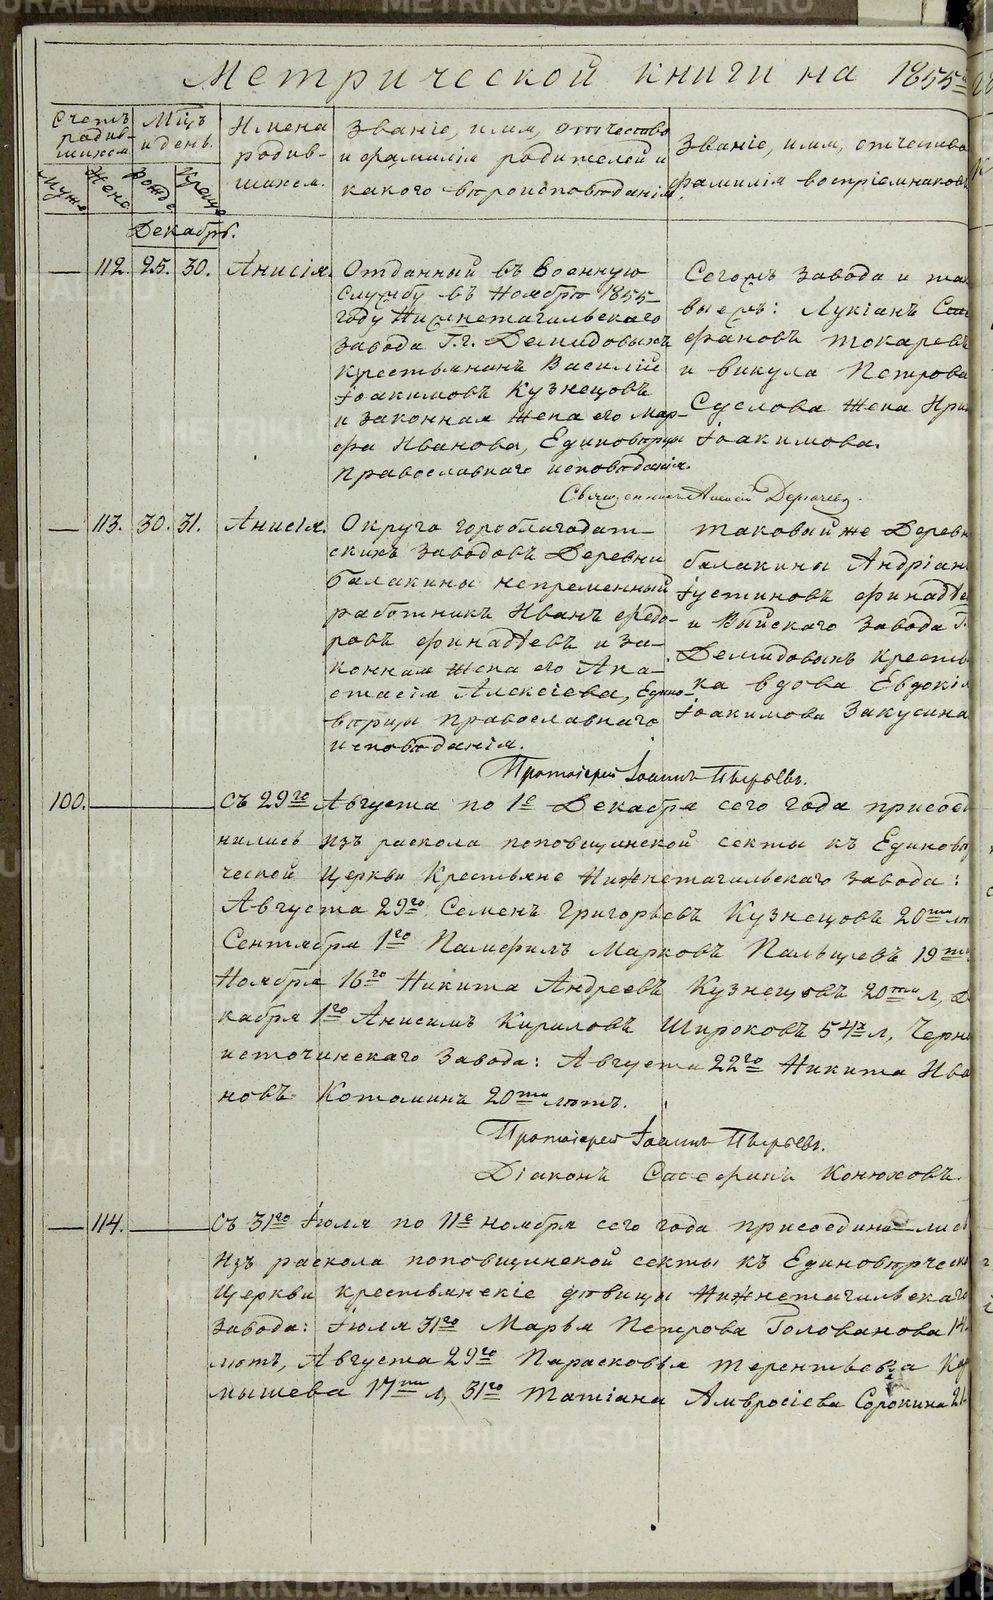 Метрической книги на 1855
Счетъ родившихся.
Муже Жено
Мѣцъ и день.
Рожд Крещ
Имена родившихся.
Званіе, имя, отчество
и фамилія родителей и
какого вѣроисповѣданія.
Званіе, имя, отчество
фамилія воспріемниковъ
Декабрь.
— 112. 25. 30. Анисія.
Отданный въ военную
службу въ Ноябрѣ 1855
году Нижнетагильскаго
завода Г.г. Демидовыхъ
крестьянинъ Василій
Іоакимовъ Кузнецовъ
и законная жена его Мар-
фа Иванова, Единовѣрцы
Православнаго исповѣданія.
Сегожъ завода и
Лукіанъ
фановъ Токаревъ
и Викула Петрова
Суслова жена
Іоакимова.
Священникъ
— 113. 30. 31. Анисія.
Округа гороблагодат-
скихъ заводовъ Деревни
балакины непременный
работникъ Иванъ Ѳедо-
ровъ финадѣевъ и за-
конная жена его Ана-
стасія Алексіева, Едино-
вѣрцы православнаго
исповѣданія.
таковой же Деревн
балакины Андріан
Іустиновъ финадѣе
и Выйскаго завода Г.
Демидовыхъ кресть
ка вдова Евдокія
Іоакимова Закусина
Протоіерей Іоаннъ Пырьевъ.
100.
Съ 29го Августа по 1е Декабря сего года присоед
нились изъ раскола поповщинской секты къ Единовѣр
ческой Церкви Крестьяне Нижнетагильскаго завода:
Августа 29го Семенъ Григорьевъ Кузнецовъ 20ти
Сентября 1го Памфилъ Марковъ Пальцевъ 19ти
Ноября 16го Никита Андреевъ Кузнецовъ 20ти л, Де
кабря 1го Анисимъ Кириловъ Широковъ 54х л, Черно
источинскаго завода: Августа 22го Никита Ива
новъ Котоминъ 20ти лѣтъ.
Протоіерей Іоаннъ Пырьевъ.
Діаконъ Конюховъ.
— 114.
Съ 31го Іюля по 11е ноября сего года присоединились
изъ раскола поповщинской секты къ Единовѣрческо
Церкви крестьянскіе дѣвицы Нижнетагильскаго
завода: Іюля 31го Марья Петрова Голованова 14
лѣтъ, Августа 29го Парасковья Терентьева
мышева 17ти л, 31го Татіана Амвросіева Сорокина 21
METRIKI.GASO-URAL.RU